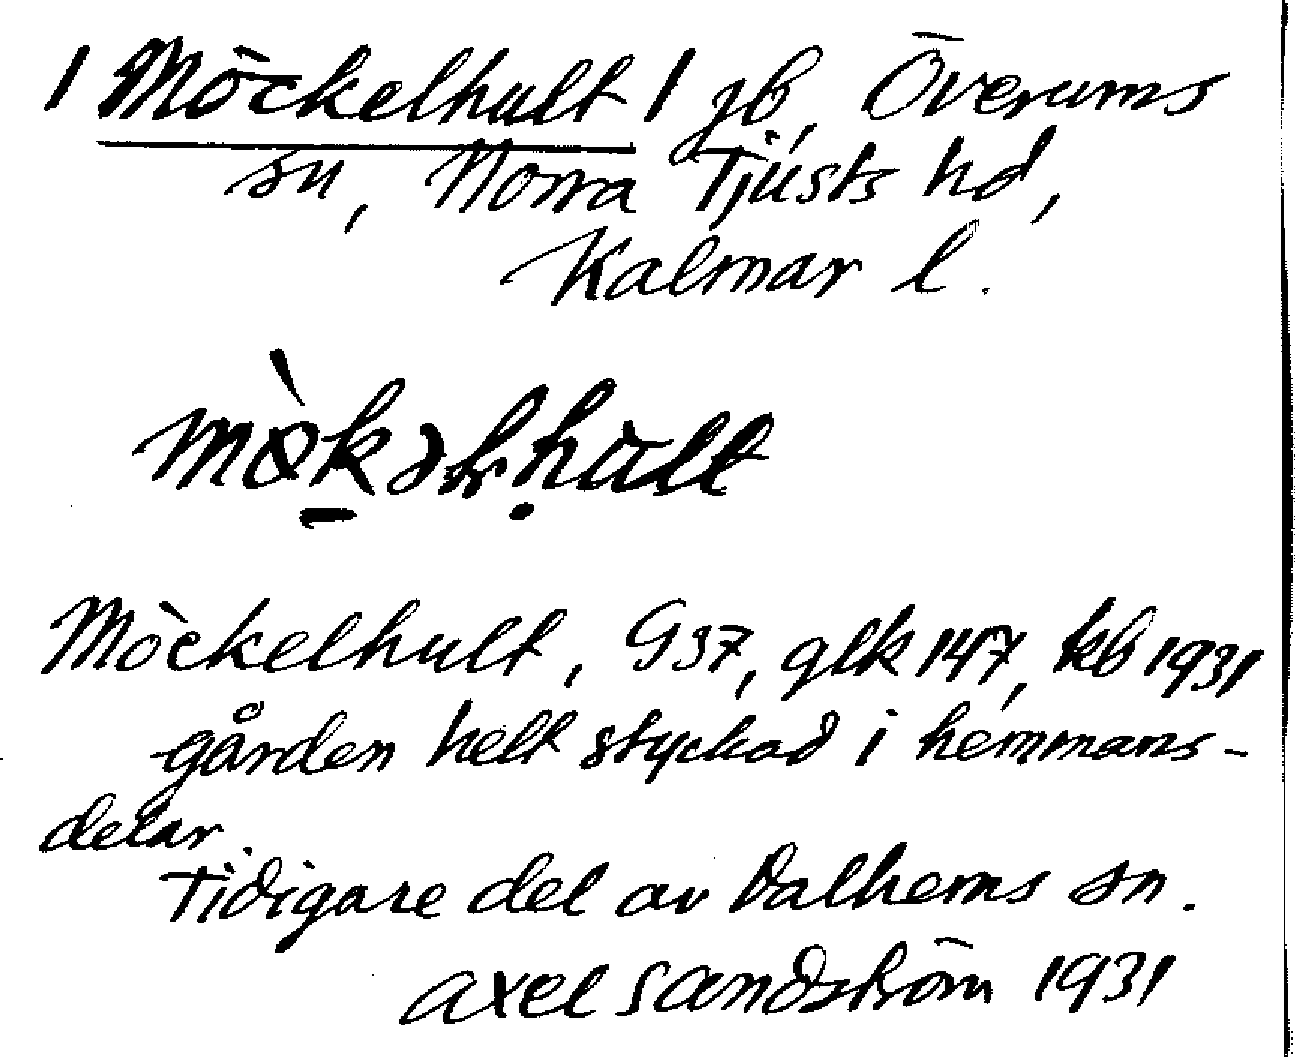 1 Möckelhult 1 gb, Överums
sn, Norra Tjusts hd,
Kalmar l.
Möckelhult, G37, glk 147, kb 1931
gården helt styckad i hemmans-
delar.
Tidigare del av Dalhems sn.
Axel Sandström 1931